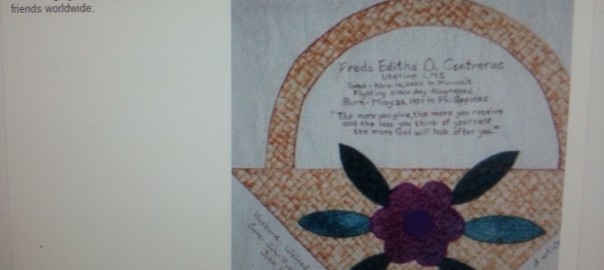 friends worldwide.
Freda Editha O. Contreras
Uterine LMS
Dead - Nov. 10, 2002 in Kuwait
Fighting since day diagnosed
Born - May 26, 1957 in Philippines
"The more you give, the more you receive
and the less you think of yourself
the more God will look after you."
Husband